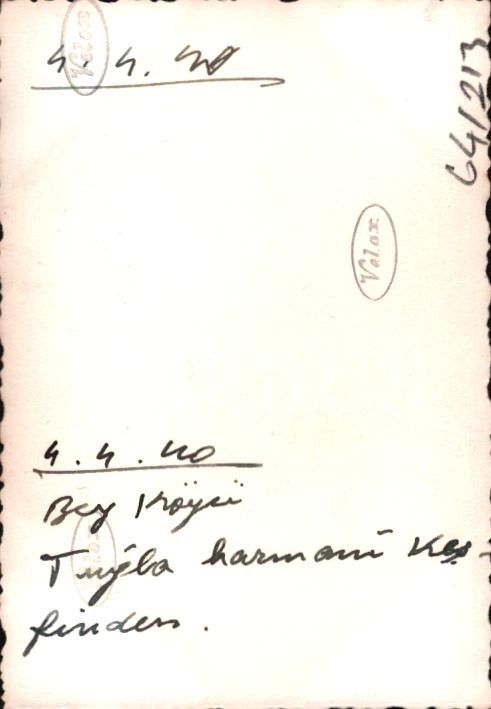 4. 4. 40
64/213
Velox
Velox
4. 4. 40
Bey Köyü
Tuğla harmanı Keş-
Velox
finden.